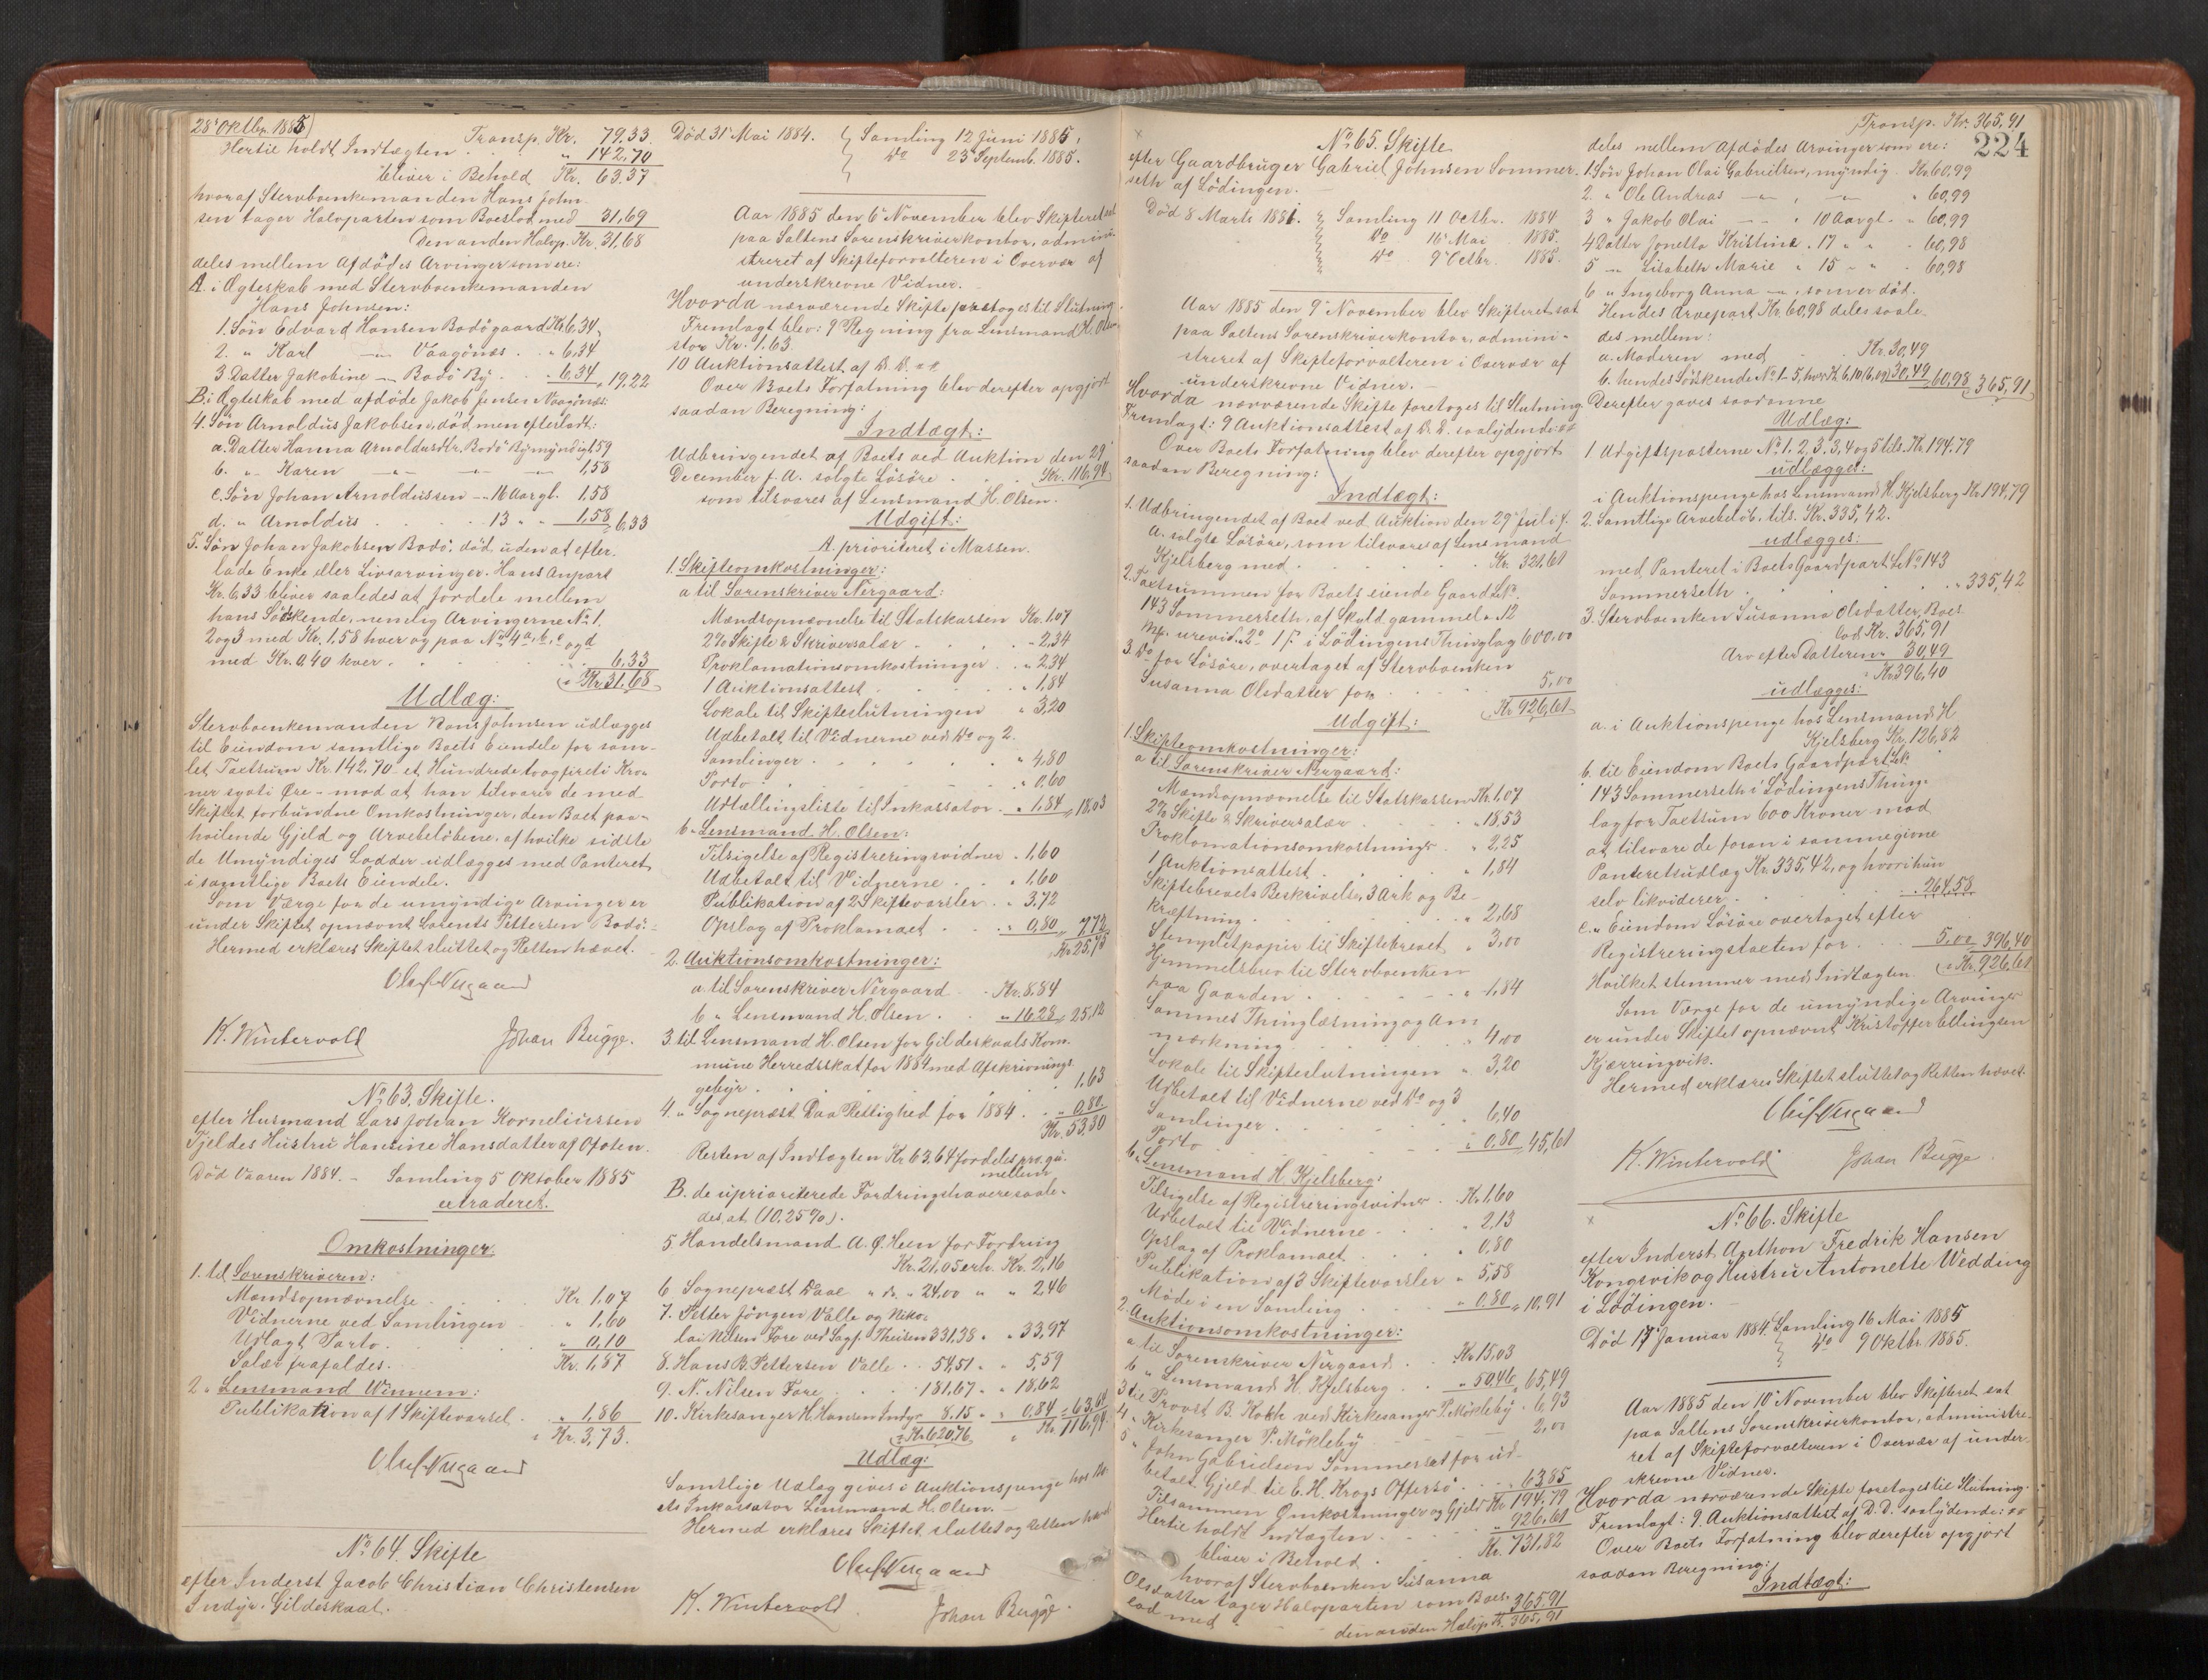 28' Oktbr. 1885)
Transp. Kr. 79.33
Hertil holdt Indtægten " 142,70
bliver i Behold Kr. 63,37
hvoraf Stervboenkemanden Hans John-
sen tager Halvparten som Boeslod med 31,69
Den anden Halvp. Kr. 31,68
deles mellem Afdødes Arvinger som ere:
A. i Ægteskab med Stervboenkemanden
Hans Johnsen:
1. Søn Edvard Hansen Bodøgaard Kr. 6,34
2. " Karl — Vaagønæs . " 6,34
3 Datter Jakobine — Bodø By . " 6,34 " 19,22
B. i Ægteskab med afdøde Jakob Jensen Vaagønæs:
4. Søn Arnoldus Jakobsen, død, men efterladt:
a. Datter Hanna Arnoldusdtr. Bodø By myndig 1,59
b. " Karen — — — 1,58
c. Søn Johan Arnoldussen — 16 Aar gl. 1,58
d. " Arnoldus . . . 13 " " 1,58 6,33
5. Søn Johan Jakobsen Bodø, død, uden at efter-
lade Enke eller Livsarvinger. Hans Anpart
Kr. 6,33 bliver saaledes at fordele mellem
hans Søskende, nemlig Arvingerne No. 1.
2 og 3 med Kr. 1,58 hver og paa No. 4 a, b, c og d
med Kr. 0,40 hver . . . 6,33
Kr. 31,68
Udlæg:
Stervboenkemanden Hans Johnsen udlægges
til Eiendom samtlige Boets Eiendele for sam-
let Taxtsum Kr. 142,70 - et Hundrede toogfireti Kro-
ner syvti Øre - mod at han tilsvarer de med
Skiftet forbundne Omkostninger, den Boet paa-
hvilende Gjeld og Arvebeløbene, af hvilke sidste
de Umyndiges Lodder udlægges med Panteret
i samtlige Boets Eiendele.
Som Værge for de umyndige Arvinger er
under Skiftet opnævnt Lorents Pettersen Bodø.
Hermed erklæres Skiftet sluttet og Retten hævet.
Oluf Nergaard
K. Wintervold Johan Bugge.
No. 63. Skifte.
efter Husmand Lars Johan Korneliussen
Tjeldes Hustru Hansine Hansdatter af Ofoten.
Død Vaaren 1884. - Samling 5 Oktober 1885
extraderet.
Omkostninger
1. til Sorenskriveren:
Mandsopnævnelse . . Kr. 1,07
Vidnerne ved Samlingen " 1,60
Udlagt Porto . . . " 0,10
Salær frafaldes. Kr. 1,87
2 " Lensmand Winnem:
Publikation af 1 Skiftevarsel . " 1,86
Kr. 3,73.
Oluf Nergaard
No. 64. Skifte
efter Inderst Jacob Christian Christensen
Indyr. Gildeskaal.
Død 31' Mai 1884. Samling 12 Juni 1885,
Do 23' Septemb. 1885.
Aar 1885 den 6' November blev Skifteret sat
paa Saltens Sorenskriverkontor, admini-
streret af Skifteforvalteren i Overvær af
underskrevne Vidner.
Hvorda nærværende Skifte foretoges til Slutning
Fremlagt blev: 9 Regning fra Lensmand H. Olsen
stor Kr. 1.63.
10 Auktionsattest af D. D.
Over Boets Forfatning blev derefter opgjort
saadan Beregning:
Indtægt:
Udbringendet af Boets ved Auktion den 29'
December f. A. solgte Løsøre . . Kr. 116,94
som tilsvares af Lensmand H. Olsen.
Udgift:
A. prioriteret i Massen.
1. Skifteomkostninger:
a til Sorenskriver Nergaard:
Mandsopnævnelse til Statskassen Kr. 1.07
2% Skifte & Skriversalær . . - 2,34
Proklamationsomkostninger . . " 2,34
1 Auktionsattest . . . " 1,84
Lokale til Skifteslutningen " 3,20
Udbetalt til Vidnerne ved Do og 2
Samlinger . . . . " 4,80
Porto . . . . " 0,60
Udtællingsliste til Inkassator . " 1,84 " 18,03
b. " Lensmand H. Olsen:
Tilsigelse af Registreringsvidner . 1,60
Udbetalt til Vidnerne . . " 1,60
Publikation af 2 Skiftevarsler . " 3,72
Opslag af Proklamaet . . " 0,80 " 7,72
Kr. 25,75
2. Auktionsomkostninger:
a. til Sorenskriver Nergaard . . Kr. 8,84
b " Lensmand H. Olsen . . " 16.28 " 25,12
3. til Lensmand H. Olsen for Gildeskaals Kom-
mune Herredsskat for 1884 med Afskrivnings-
gebyr . . . . 1,63
4. " Sognepræst Daa Rettighed for 1884 . . " 0,80.
Kr. 53,30
Resten af Indtægten Kr. 63,64 fordeles pro qu.
mellem
B. de uprioriterede Fordringshavere saale-
des at (10,25%).
5. Handelsmand A. Q. Heen for Fordring
Kr. 21.05 erh. Kr. 2,16
6. Sognepræst Daae " do. " 24.00 " " 2,46
7. Petter Jørgen Valle og Niko-
lai Nilsen Fore ved Sagf. Theisen 331,38 " " 33,97
8. Hans R Pettersen Valle . . 54,51 " " 5,59
9. N. Nilsen Fore . . . 181,67 " " 18,62
10. Kirkesanger H. Hansen Indyr 8.15 " " 0,84 " 63,64
Kr. 620,76 Kr. 116,94
Udlæg:
Samtlige Udlæg gives i Auktionspenge hos Bo-
ets Inkassator Lensmand H. Olsen. -
Hermed erklæres Skiftet sluttet og Retten hævet
Oluf Nergaard
K. Wintervold Johan Bugge.
No. 65. Skifte
efter Gaardbruger Gabriel Johnsen Sommer-
seth af Lødingen.
Død 8 Marts 1881. Samling 11 Octbr. 1884
Do 16' Mai 1885.
Do 9' Octbr. 1885.
Aar 1885 den 9' November blev Skifteret sat
paa Saltens Sorenskriverkontor, admini-
streret af Skifteforvalteren i Overvær af
underskrevne Vidner. -
Hvorda nærværende Skifte foretoges til Slutning
Fremlagt: 9 Auktionsattest af D. D. saalydende:
Over Boets Forfatning blev derefter opgjort
saadan Beregning:
Indtægt:
1. Udbringendet af Boet ved Auktion den 29' Juli f.
A. solgte Løsøre, som tilsvares af Lensmand
Kjelsberg med . . . . Kr. 321,61
2. Taxtsummen for Boets eiende Gaard L.No.
143 Sommerseth, af Skyld gammel " 12
Mk. urevid. 2 " 1 ß i Lødingens Thinglag 600,00
3. Do for Løsøre, overtaget af Stervboenken
Susanna Olsdatter for . . . 5,00
Kr. 926,61
Udgift:
1. Skifteomkostninger:
a til Sorenskriver Nergaard:
Mandsopnævnelse til Statskassen Kr. 1,07
2% Skifte & Skriversalær . . " 18,53
Proklamationsomkostninger . " 2,25
1 Auktionsattest . . . . " 1,84
Skiftebrevets Beskrivelse, 3 Ark og Be-
kræftning . . . . " 2,68
Stemplet papir til Skiftebrevet " 3,00
Hjemmelsbrev til Stervboenken
paa Gaarden . . . . " 1,84
Sammes Thinglæsning og An-
mærkning . . . . 4,00
Lokale til Skifteslutningen " 3,20
Udbetalt til Vidnerne ved Do og 3
Samlinger . . . . 6,40
Porto . . . . " 0,80 " 45,61
b. " Lensmand H. Kjelsberg:
Tilsigelse af Registreringsvidner . Kr. 1,60
Udbetalt til Vidnerne . . . " 2,13
Opslag af Proklamaet . . . " 0,80
Publikation af 3 Skiftevarsler " 5,58
Møde i en Samling . . " 0,80 " 10,91
2. Auktionsomkostninger:
a. til Sorenskriver Nergaard . . Kr. 15,03
b " Lensmand H. Kjelsberg . . " 50,46 " 65,49
3 til Provst B. Kokh ved Kirkesanger P. Møkleby . 6,93
4 " Kirkesanger P. Møkleby . . 2,00
5 " John Gabrielsen Sommerset for ud-
betalt Gjeld til E. H. Krogs Offersø . . . 63,85
Tilsammen Omkostninger og Gjeld Kr. 194,79
Hertil holdt Indtægten . . . " 926,61
bliver i Behold . . . Kr. 731,82
hvoraf Stervboenken Susanna
Olsdatter tager Halvparten som Boes-
lod med . . . 365,91
den anden Halvp. Kr. 365,91
Transp. Kr. 365,91
224
deles mellem Afdødes Arvinger som ere:
1. Søn Johan Olai Gabrielsen, myndig . Kr. 60,99
2. " Ole Andreas — " — " 60,99
3 " Jakob Olai — " 10 Aar gl. - " 60,99
4 Datter Jonetta Kristine . 17 " " . 60,98
5 — Lisabeth Marie " 15 " " . 60,98
6 " Ingeborg Anna —, som er død.
Hendes Arvepart Kr. 60,98 deles saale-
des mellem:
a. Moderen med . . Kr. 30,49
b. hendes Søskende No. 1-5, hver Kr. 6,10 (6,09) 30,49 60,98 365,91
Derefter gaves saadanne
Udlæg:
1 Udgiftsposterne No. 1. 2, 3. 3, 4 og 5 tils. Kr. 194.79
udlægges:
i Auktionspenge hos Lensmand H. Kjelsberg Kr. 194,79
2. Samtlige Arvebeløb, tils. Kr. 335,42.
udlægges:
med Panteret i Boets Gaardpart L.No. 143
Sommerseth . . . . " 335,42
3. Stervboenken Susanna Olsdatter, Boes-
lod Kr. 365,91
Arv efter Datteren " 30,49
Kr. 396,40
udlægges:
a. i Auktionspenge hos Lensmand H
Kjelsberg Kr. 126,82
b. til Eiendom Boets Gaardpart L.No.
143 Sommerseth i Lødingens Thing-
lag for Taxtsum 600 Kroner mod
at tilsvare de foran i samme givne
Panteretsudlæg Kr. 335,42, og hvori hun
selv likviderer . . . . 264,58
c. " Eiendom Løsøre overtaget efter
Registreringstaxten for . . 5,00 396,40
Hvilket stemmer med Indtægten Kr. 926,61
Som Værge for de umyndige Arvinger
er under Skiftet opnævnt Kristoffer Ellingsen
Kjærringvik.
Hermed erklæres Skiftet sluttet og Retten hævet.
Oluf Nergaard
K. Wintervold Johan Bugge.
No. 66. Skifte
efter Inderst Anthon Fredrik Hansen
Kongsvik og Hustru Antonette Wedding
i Lødingen. -
Død 17' Januar 1884. Samling 16 Mai 1885
Do 9 Oktbr. 1885.
Aar 1885 den 10' November blev Skifteret sat
paa Saltens Sorenskriverkontor, administre-
ret af Skifteforvalteren i Overvær af under-
skrevne Vidner.
Hvorda nærværende Skifte foretoges til Slutning.
Fremlagt: 9. Auktionsattest af D. D. saalydende:
Over Boets Forfatning blev derefter opgjort
saadan Beregning:
Indtægt: